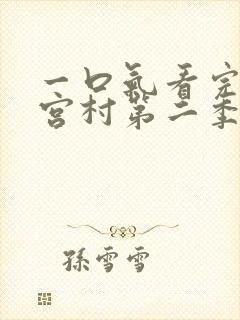 一口氣看完
宮村第二季
孫雪雪